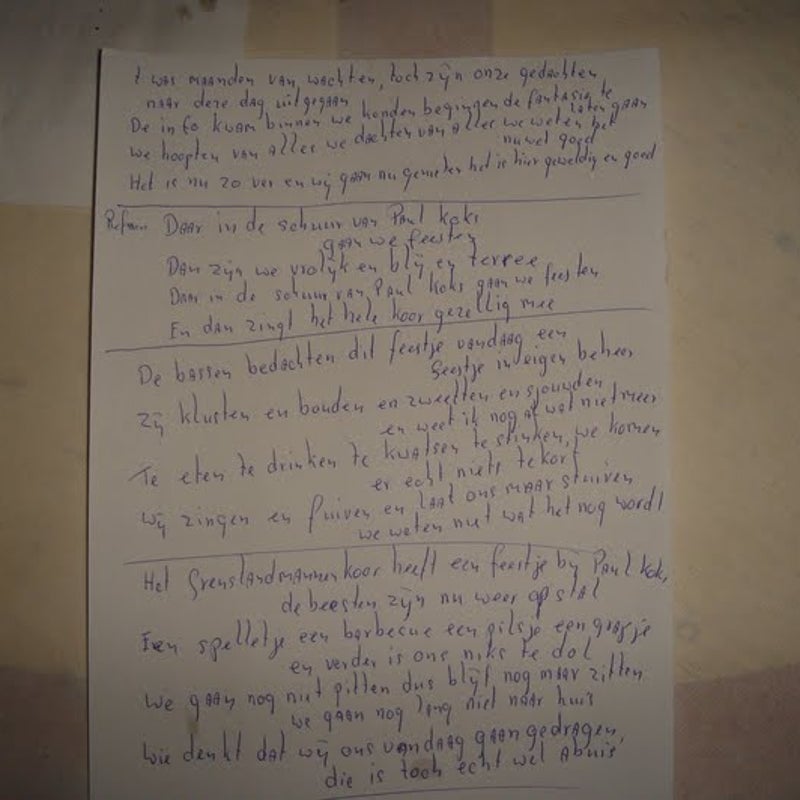 t was maanden van wachten, toch zijn onze gedachten
naar deze dag uitgegaan
De info kwam binnen we konden beginnen de fantasie te
laten gaan
We hoopten van alles we dachten van alles we weten het
nu wel goed
Het is nu zo ver en wij gaan nu genieten het is hier geweldig en goed
Refrein Daar in de schuur van Paul Koks
gaan we feesten
Dan zijn we vrolijk en blij en tevree
Daar in de schuur van Paul Koks gaan we feesten
En dan zingt het hele koor gezellig mee
De bassen bedachten dit feestje vandaag een
feestje in eigen beheer
Zij klusten en bouden en zweetten en sjouwden
en weet ik nog al wat niet meer
Te eten te drinken te kwatsen te stinken, we komen
er echt niets tekort
Wij zingen en fuiven en laat ons maar stuiven
we weten niet wat het nog wordt
Het Grenslandmannenkoor heeft een feestje bij Paul Koks,
de beesten zijn nu weer op stal
Een spelletje een barbecue een pilsje een grapje
en verder is ons niks te dol
We gaan nog niet pitten dus blijf nog maar zitten
we gaan nog lang niet naar huis
Wie denkt dat wij ons vandaag gaan gedragen,
die is toch echt wel abuis